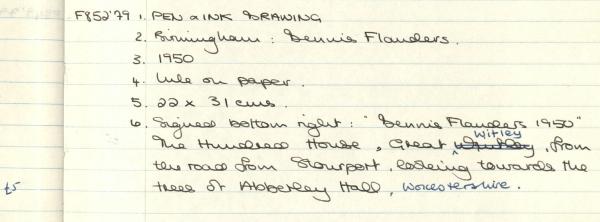 F852'79 1. PEN & INK DRAWING
2. Birmingham : Dennis Flanders.
3. 1950
4. Ink on paper.
5. 22 x 31 cms.
6. Signed bottom right : "Dennis Flanders 1950"
The Hundred House, Great Witley, from
the road from Stourport, looking towards the
£5 trees of Abberley Hall, Worcestershire.